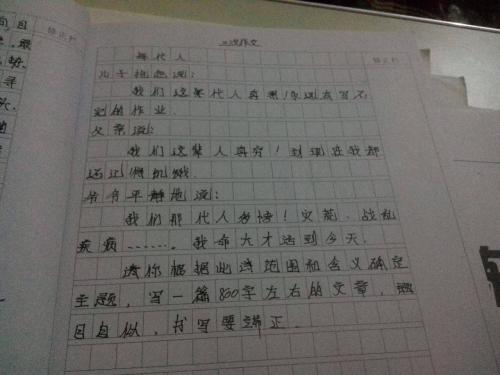 向
作文
修正栏
每代人
修正栏
儿子抱怨说：
我们这辈代人真累！永远有写不
完的作业．
父亲说：
我们这辈人真穷！到现在我都
还记得饥饿．
爷爷平静地说：
我们那代人多惨！灾荒、战乱
疾病……。我命大才活到今天．
请你根据此选范围和含义确定
主题，写一篇800字左右的文章，题
目自似，书写要端正．